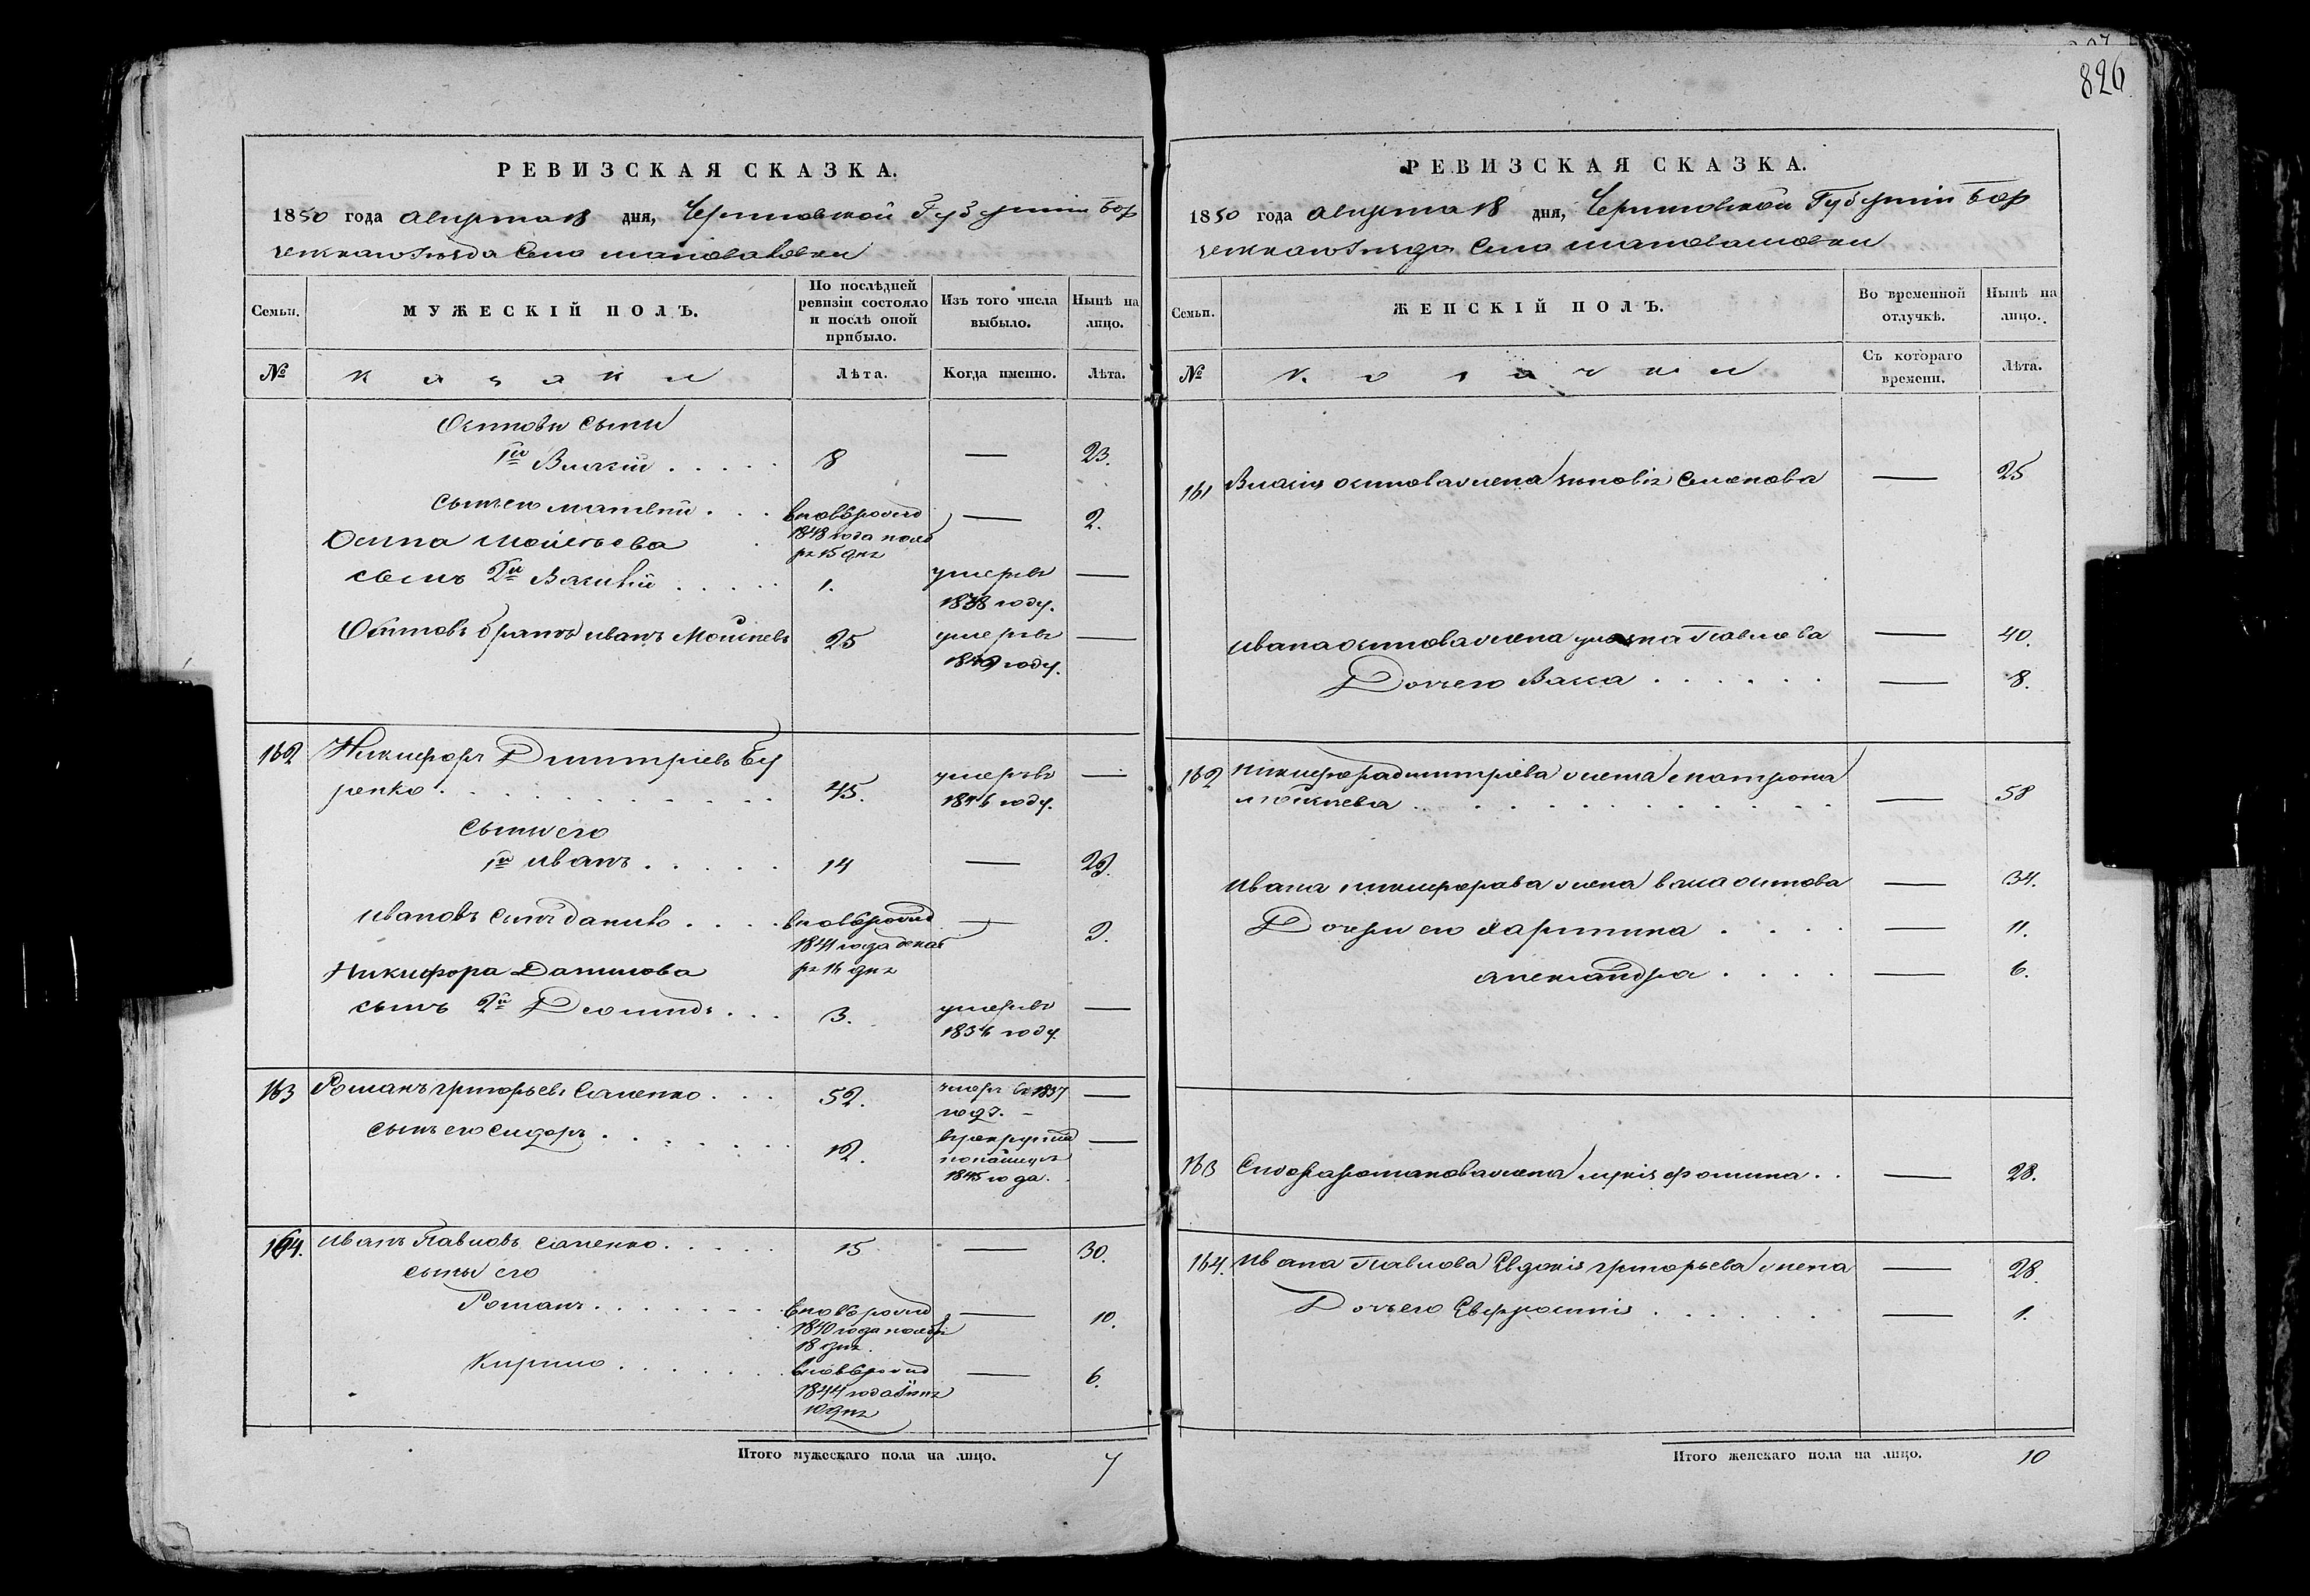 826
РЕВИЗСКАЯ СКАЗКА.
1850 года августа 18 дня, Черниговской Губернии Бор
зенскаго уезда Села
МУЖЕСКІЙ ПОЛЪ.
Семьи.
По послѣдней ревизіи состояло и послѣ оной прибыло.
Изъ того числа выбыло.
Нынѣ на лицо.
№
Козаки
Лѣта.
Когда именно.
Лѣта.
Осиповы сыны
1й Власій 8 — 23.
сынъ его Матвей вновьрожд — 2.
1848 года нояб
ря 15 дня
Осипа Моисеева
сынъ 2й Василій 1. умеръ въ —
1838 году.
Осиповъ братъ Иванъ Моисеевъ 25 умеръ въ —
году.
162 Никифоръ Димитріевъ Бу
ренко 45. умеръ въ —
1846 году.
сыны его
1й Иванъ 14 — 29.
Ивановъ сынъ Данило вновьрожд —
1841 года декаб
ря 16 дня
Никифора Данилова
сынъ 2й Деомидъ 3. умеръ въ —
1836 году.
163 Романъ Григорьевъ Саменко 52. умеръ въ 1837 —
году. —
сынъ его Сидоръ 12. —
1845 года.
164. Иванъ Павловъ Саменко 15 — 30.
сыны его
Романъ вновьрожд — 10.
1840 года ноября
18 дня.
Кирило вновьрожд — 6.
1844 года
10 дня
Итого мужескаго пола на лицо. 7
РЕВИЗСКАЯ СКАЗКА.
1850 года августа 18 дня, Черниговской Губернии Бор
зенскаго уезда Села
Семьи.
ЖЕНСКІЙ ПОЛЪ.
Во временной отлучкѣ.
Нынѣ на лицо.
№
Козачки
Съ котораго времени.
Лѣта.
161 Власія Осипова жена Зиновія Семенова — 25
Ивана Осипова жена Павлова — 40.
Дочъ его Васса — 8.
162 Никифора Димитріева жена Матрона
Моисеева — 58
Ивана Никифорава жена Васса Осипова — 34.
Дочери его Харитина — 11.
Александра — 6.
163 Сидора Романова жена Лукія Фомина — 28.
164. Ивана Павлова Евдокія Григорьева жена — 28.
Дочъ его Евфросинія — 1.
Итого женскаго пола на лицо. 10